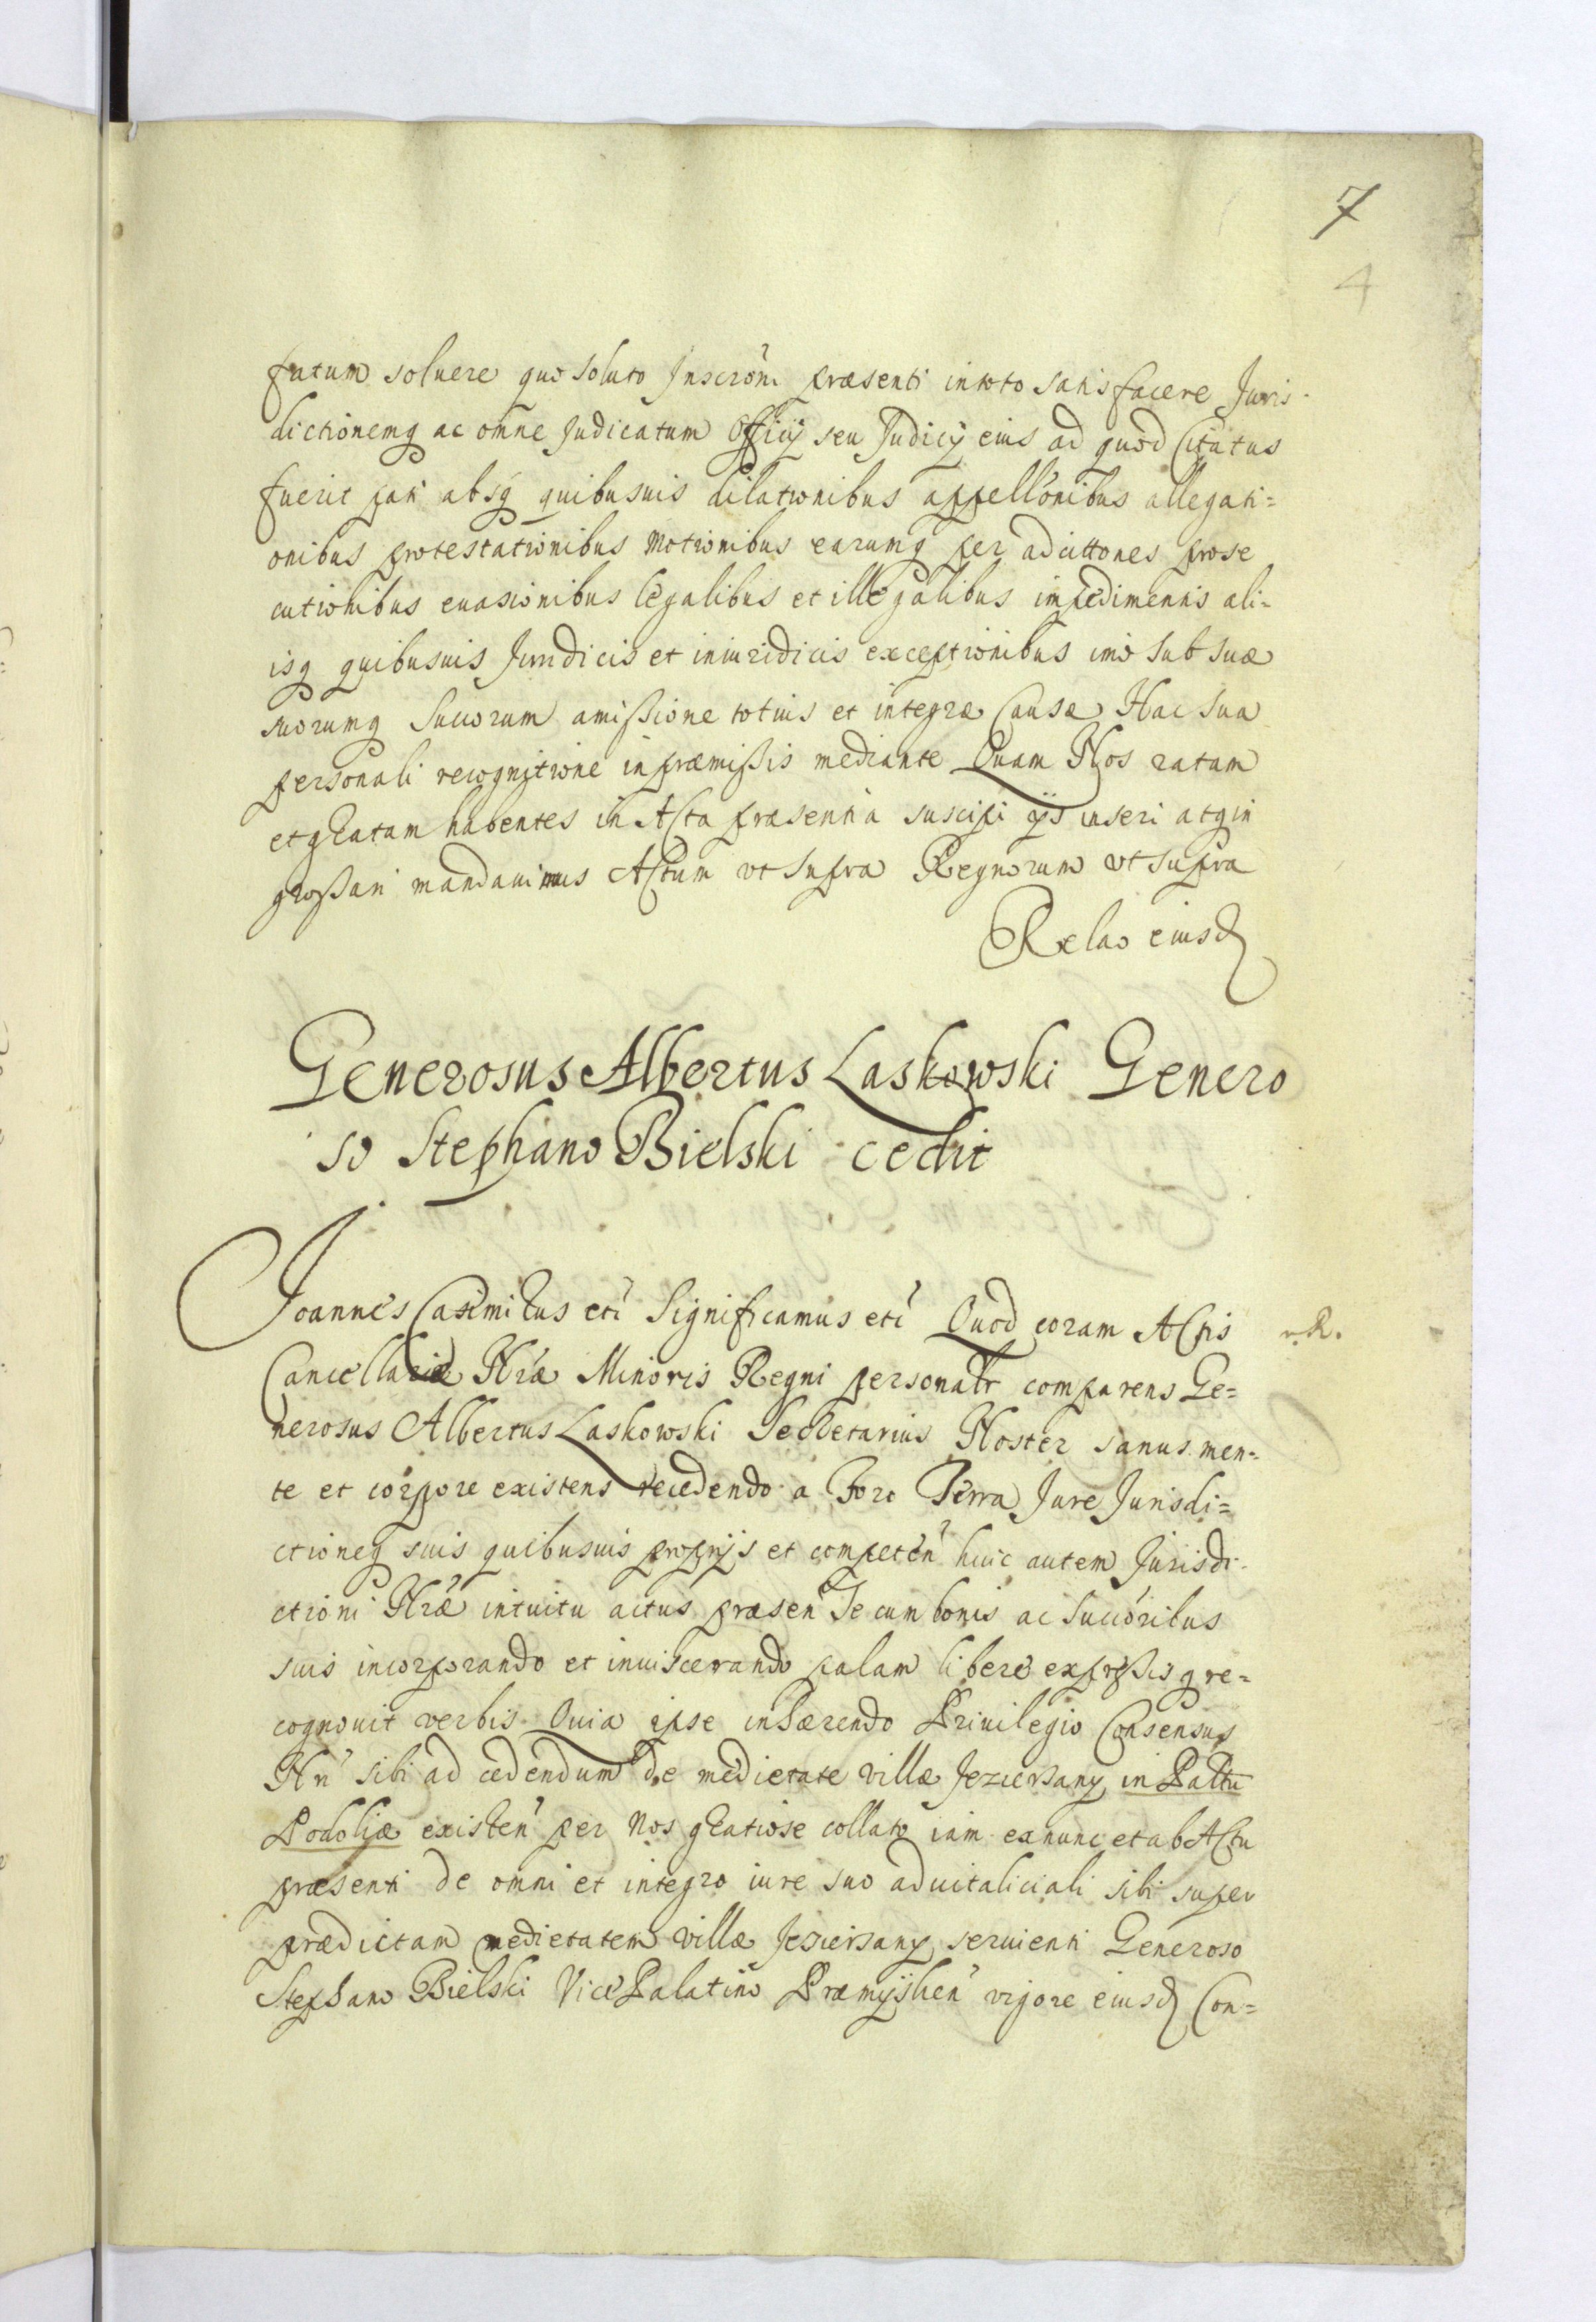 7
4
fatum soluere quo soluto Inscrõni præsenti in toto satisfacere Juris
dictionemq ac omne Judicatum Officij seu Judicij eius ad quod Citatus
fuerit pati absq quibusuis dilationibus appellõnibus allegati=
onibus protestationibus motionibus earumq per adcittones prose
cutionibus euasionibus legalibus et illegalibus impedimentis ali=
isq quibusuis Juridicis et iniuridicis exceptionibus imo sub suæ
suorumq Succorum amißione totius et integræ Causæ Hac sua
personali recognitione in præmißis mediante Quam Nos ratam
et gratam habentes in Acta præsentia suscipi ijs inseri atq in
großari mandauimus Actum vt supra Regnorum vt supra
Relao eiusd
Generosus Albertus Laskowski Genero
so Stephano Bielski cedit
Joannes Casimirus etc Significamus etc Quod coram Actis
r. R.
Cancellariæ Nræ Minoris Regni personalr comparens Ge=
nerosus Albertus Laskowski Secretarius Noster sanus men=
te et corpore existens recedendo a Foro Terra Jure Jurisdi=
ctioneq suis quibusuis proprijs et competen huic autem Jurisdi
ctioni Nræ intuitu actus præsen Se cum bonis ac Succoribus
suis incorporando et inuiscerando palam libere expreßisq re=
cognouit verbis Quia ipse inhærendo Priuilegio Consensus
Nri sibi ad cedendum de medietate villæ Jeziersany in Palttu
Podoliæ existen per Nos gratiose collato iam ex nunc et ab Actu
præsenti de omni et integro iure suo aduitaliciali sibi super
prædictam medietatem villæ Jeziersany seruienti Generoso
Stephano Bielski Vice Palatino Præmyslien vigore eiusd Con=